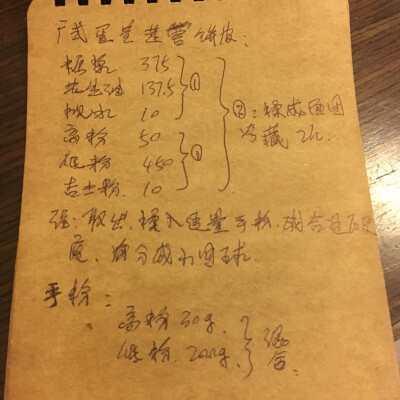 广式蛋黄莲蓉饼皮:
糖浆 375
花生油 137.5 ①
枧水 10
高粉 50 ②:揉成面团
低粉 450 冷藏2h.
吉士粉 10
取出,揉入适量手粉,
度,分成小圆球.
手粉:
高粉 50g.
低粉 200g. 混合.